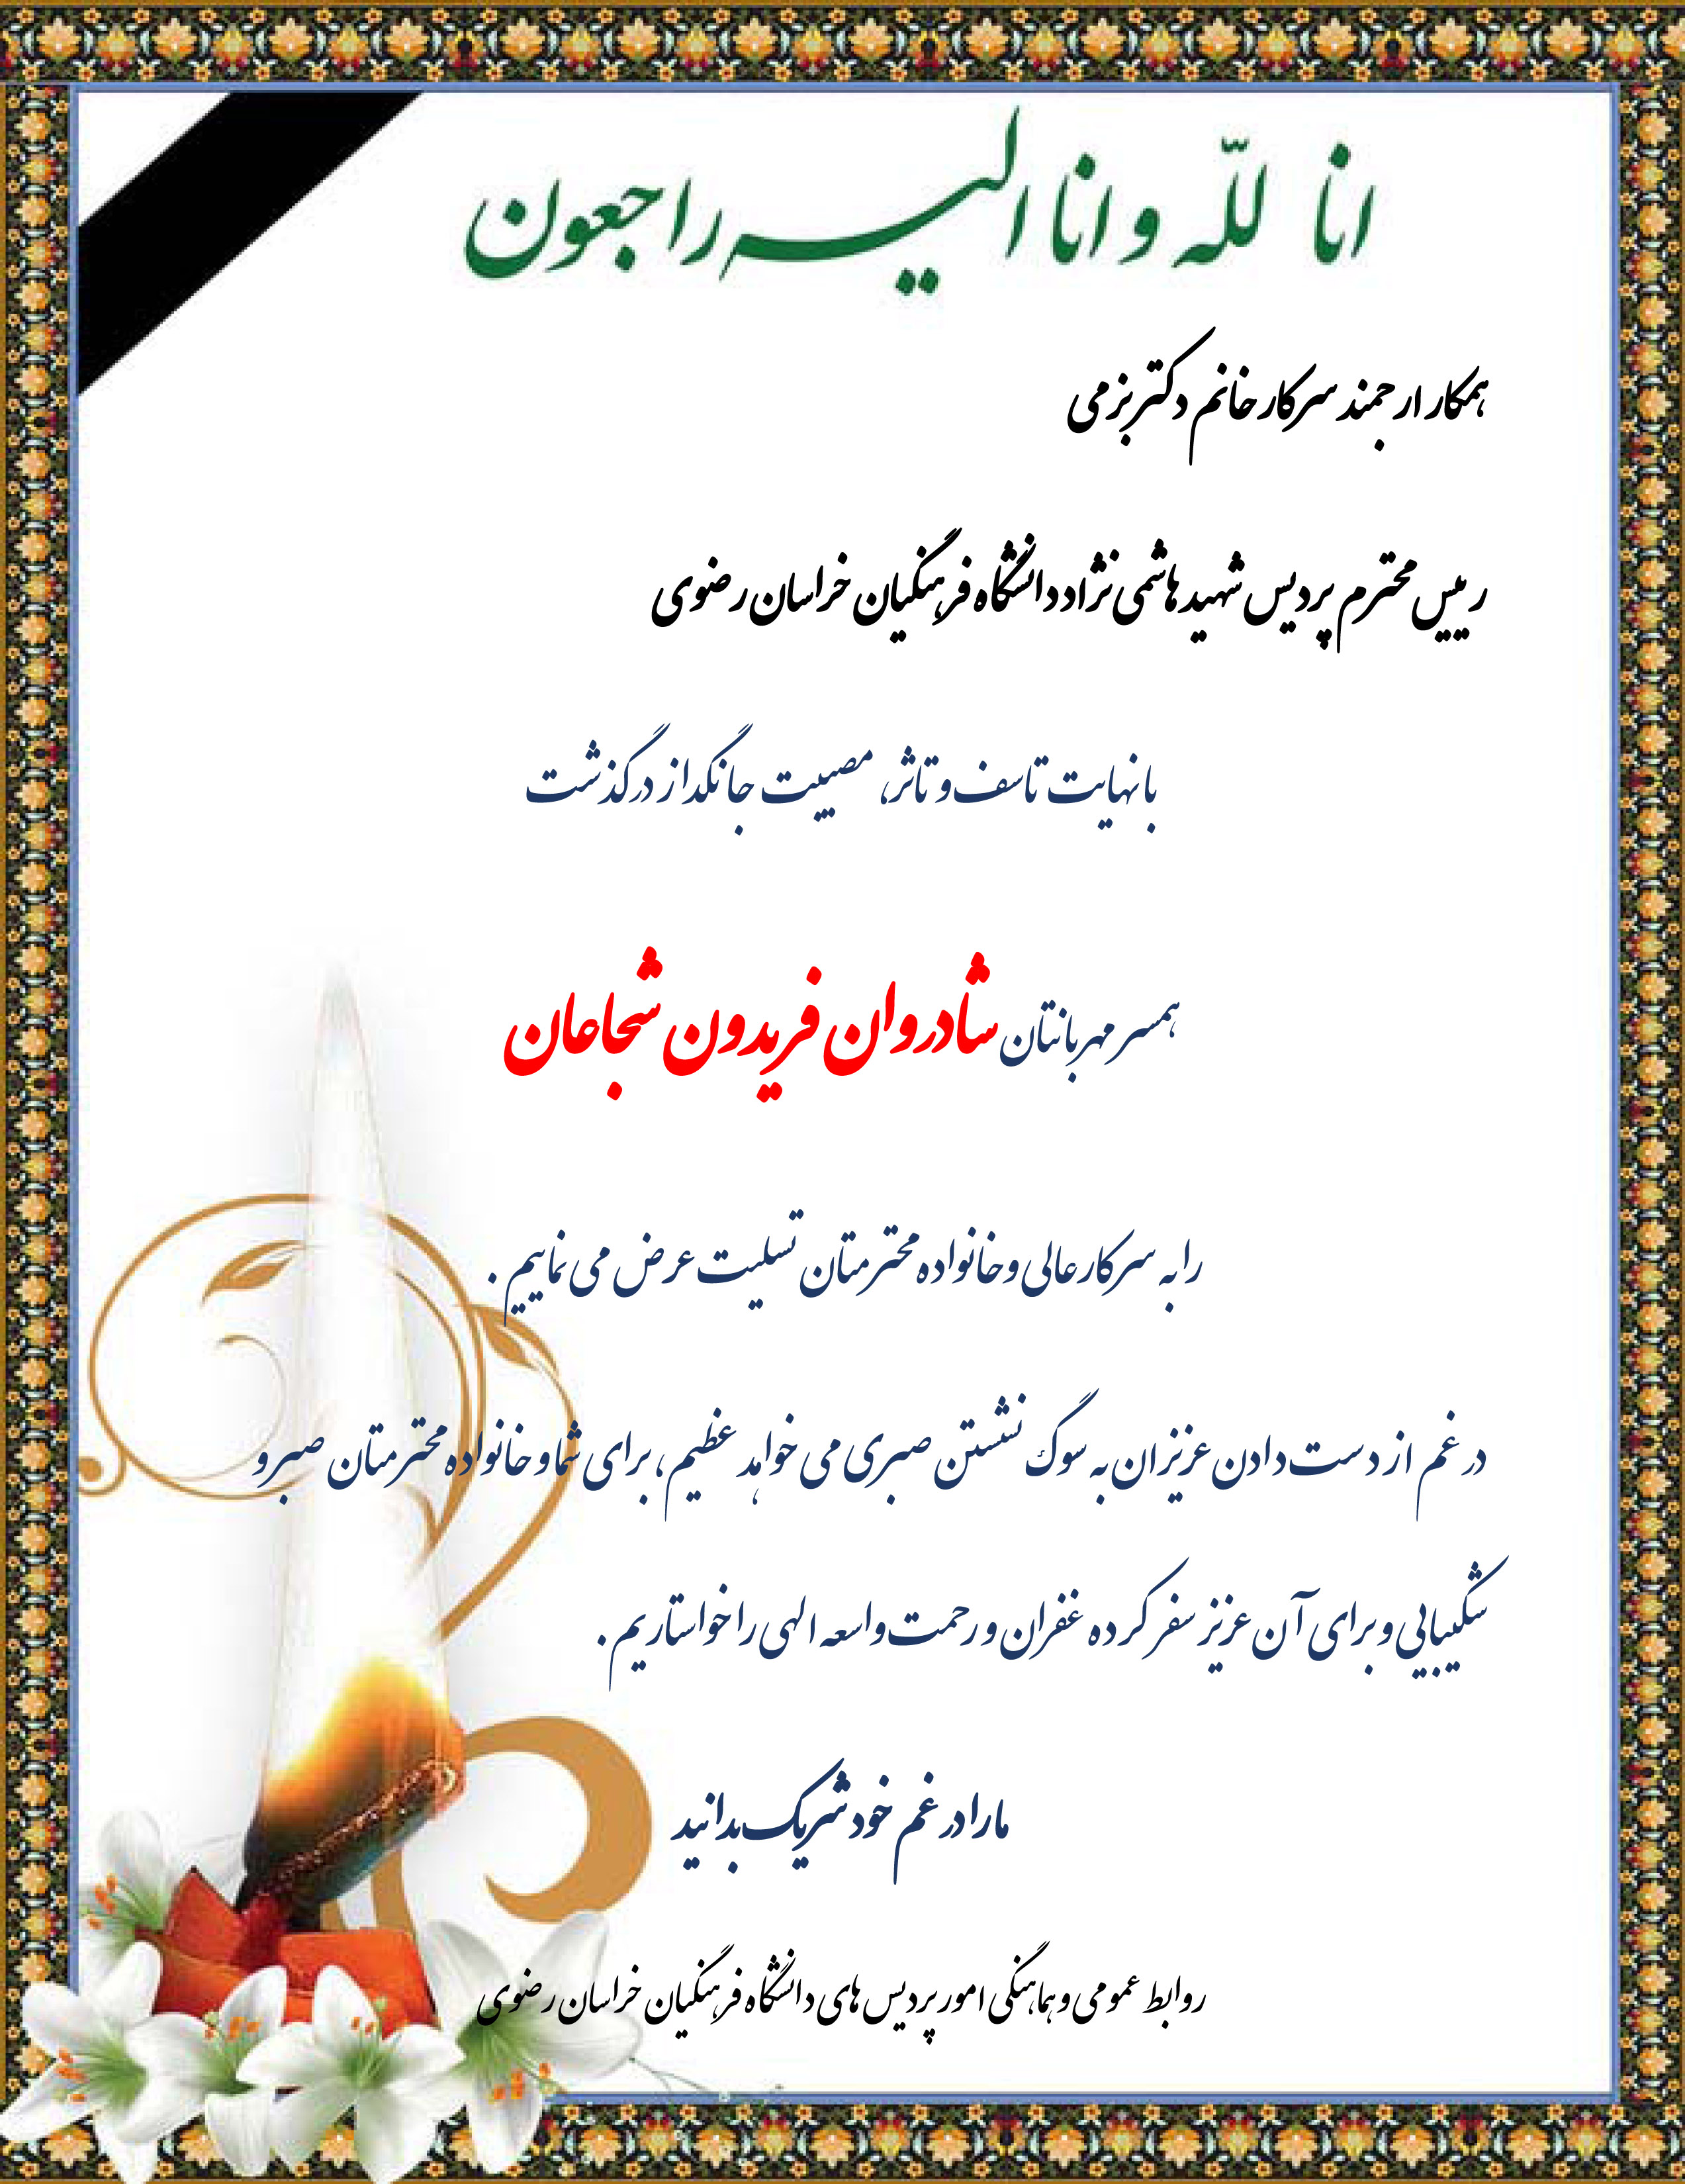 انا للّه و انا الیه راجعون
همکار ارجمند سرکار خانم دکتر بزمی
رییس محترم پردیس شهید هاشمی نژاد دانشگاه فرهنگیان خراسان رضوی
با نهایت تاسف و تاثر، مصیبت جانگداز درگذشت
همسر مهربانتان شادروان فریدون شجاعان
را به سرکار عالی و خانواده محترمتان تسلیت عرض می نماییم .
در غم از دست دادن عزیزان به سوگ نشستن صبری می خواهد عظیم، برای شما و خانواده محترمتان صبر و
شکیبایی و برای آن عزیز سفر کرده غفران و رحمت واسعه الهی را خواستاریم .
ما را در غم خود شریک بدانید
روابط عمومی و هماهنگی امور پردیس های دانشگاه فرهنگیان خراسان رضوی